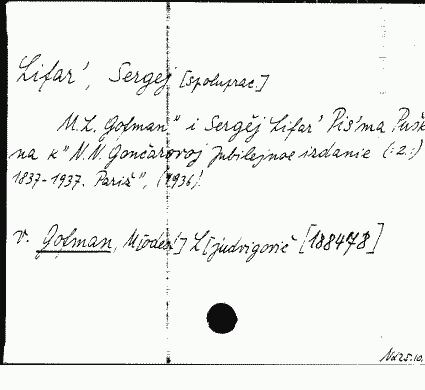 Lifar', Sergej [spoluprac.]
M.L. Gofman" i Sergěj Lifar' Pis'ma Pušk
na k" N.N. Gončarovoj Jubilejnoe izdanie (:2.:)
1837-1937. Pariž", (1936).
v. Gofman, M[odest] L[judvigovič [188478]